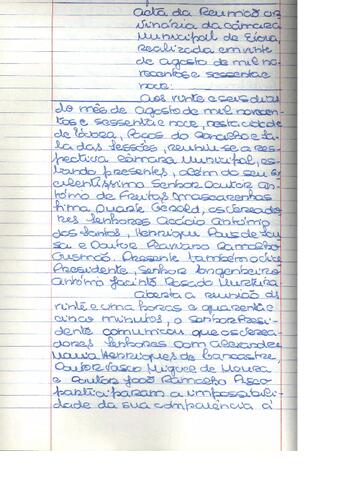 Acta da Reunião or
dinária da Câmara
Municipal de Évora
realizada em vinte
de agosto de mil no
vecentos e sessenta e
nove:
Aos vinte e seis dias
do mês de Agosto de mil novecen
tos e sessenta e nove, nesta cidade
de Évora, Paços do Concelho e Sa
la das Sessões, reuniu-se a res-
pectiva Câmara Municipal, es-
tando presentes, além do seu Ex
celentíssimo Senhor Doutor An
tónio de Freitas Mascarenhas
Lima Duarte Gerald, os Vereado
res Senhores Acácio António
dos Santos, Henrique Pais de Sou
sa e Doutor Mariano Ramalho
Gusmão. Presente também o Vice
Presidente, Senhor Engenheiro
António Jacinto Rosado
Aberta a reunião às
vinte e uma horas e quarenta e
cinco minutos, o Senhor Presi-
dente comunicou que os Verea-
dores Senhores Dom Alexandre
Maria Henriques de Lancastre,
Doutor Vasco Miguel de Moura
e Doutor João Ramalho
participaram a impossibili-
dade da sua comparência à